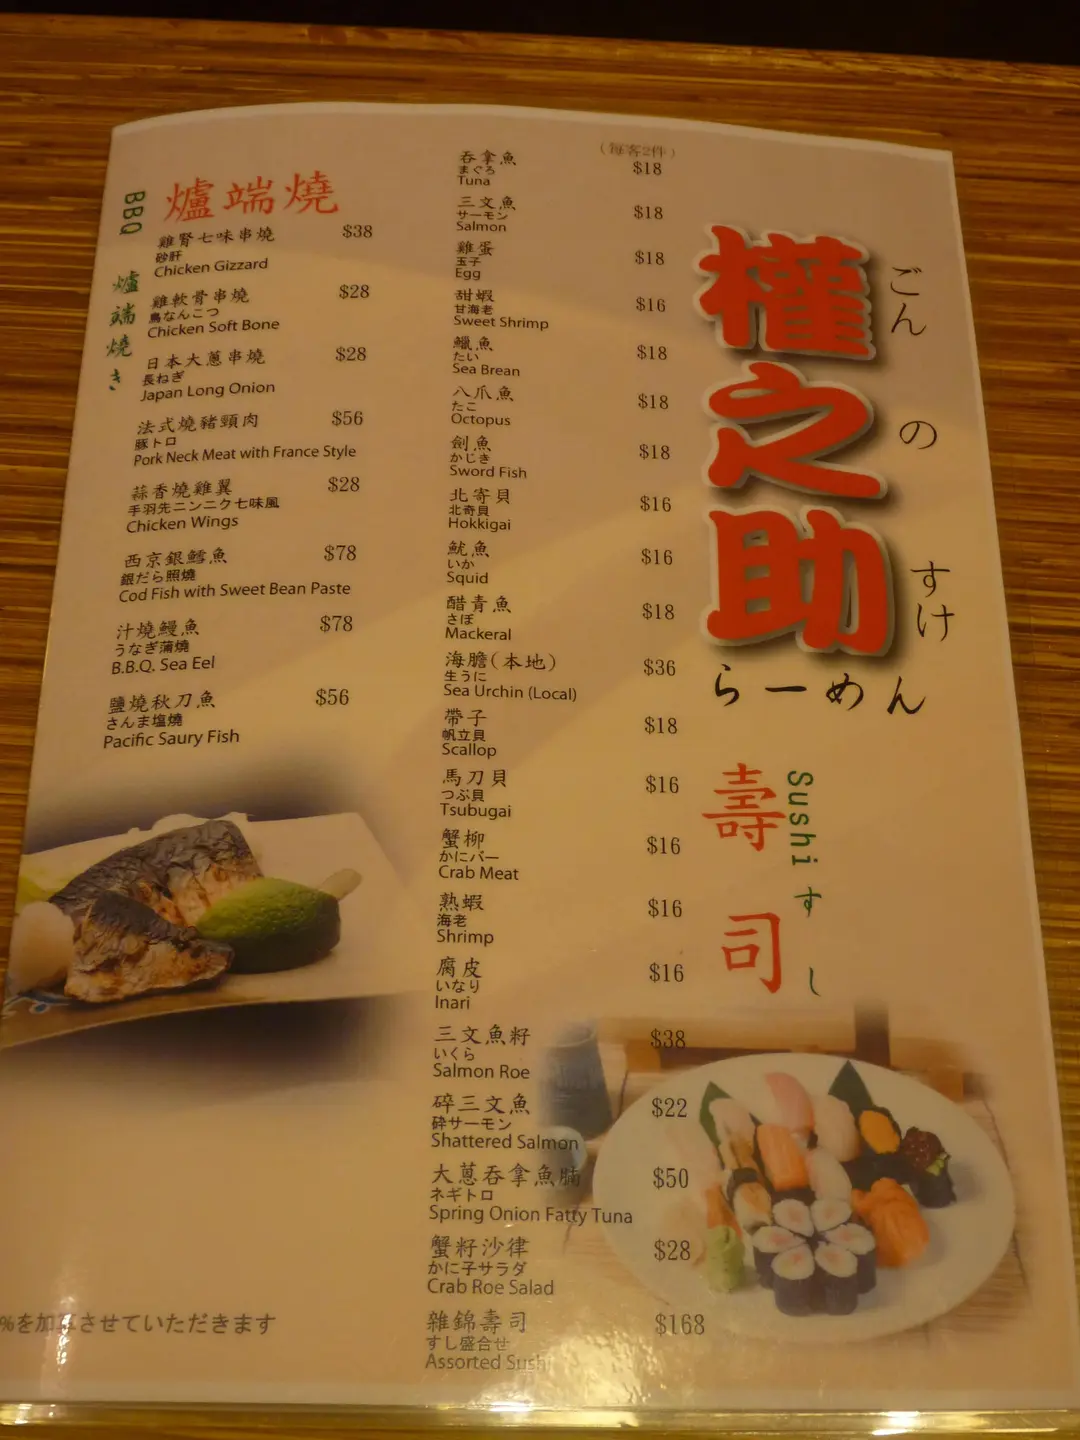 BBQ
爐端燒
爐端燒き
雞腎七味串燒 $38
砂肝
Chicken Gizzard
雞軟骨串燒 $28
鳥なんこつ
Chicken Soft Bone
日本大蔥串燒 $28
長ねぎ
Japan Long Onion
法式燒豬頸肉 $56
豚トロ
Pork Neck Meat with France Style
蒜香燒雞翼 $28
手羽先ニンニク七味風
Chicken Wings
西京銀鱈魚 $78
銀だら照燒
Cod Fish with Sweet Bean Paste
汁燒鰻魚 $78
うなぎ蒲燒
B.B.Q. Sea Eel
鹽燒秋刀魚 $56
さんま塩燒
Pacific Saury Fish
%を加算させていただきます
(每客2件)
吞拿魚 $18
まぐろ
Tuna
三文魚 $18
サーモン
Salmon
雞蛋 $18
玉子
Egg
甜蝦 $16
甘海老
Sweet Shrimp
鱲魚 $18
たい
Sea Brean
八爪魚 $18
たこ
Octopus
劍魚 $18
かじき
Sword Fish
北寄貝 $16
北奇貝
Hokkigai
魷魚 $16
いか
Squid
醋青魚 $18
さば
Mackeral
海膽(本地) $36
生うに
Sea Urchin (Local)
帶子 $18
帆立貝
Scallop
馬刀貝 $16
つぶ貝
Tsubugai
蟹柳 $16
かにバー
Crab Meat
熟蝦 $16
海老
Shrimp
腐皮 $16
いなり
Inari
三文魚籽 $38
いくら
Salmon Roe
碎三文魚 $22
砕サーモン
Shattered Salmon
大蔥吞拿魚腩 $50
ネギトロ
Spring Onion Fatty Tuna
蟹籽沙律 $28
かに子サラダ
Crab Roe Salad
雜錦壽司 $168
すし盛合せ
Assorted Sushi
權之助
ごんのすけ
らーめん
壽司
Sushi すし